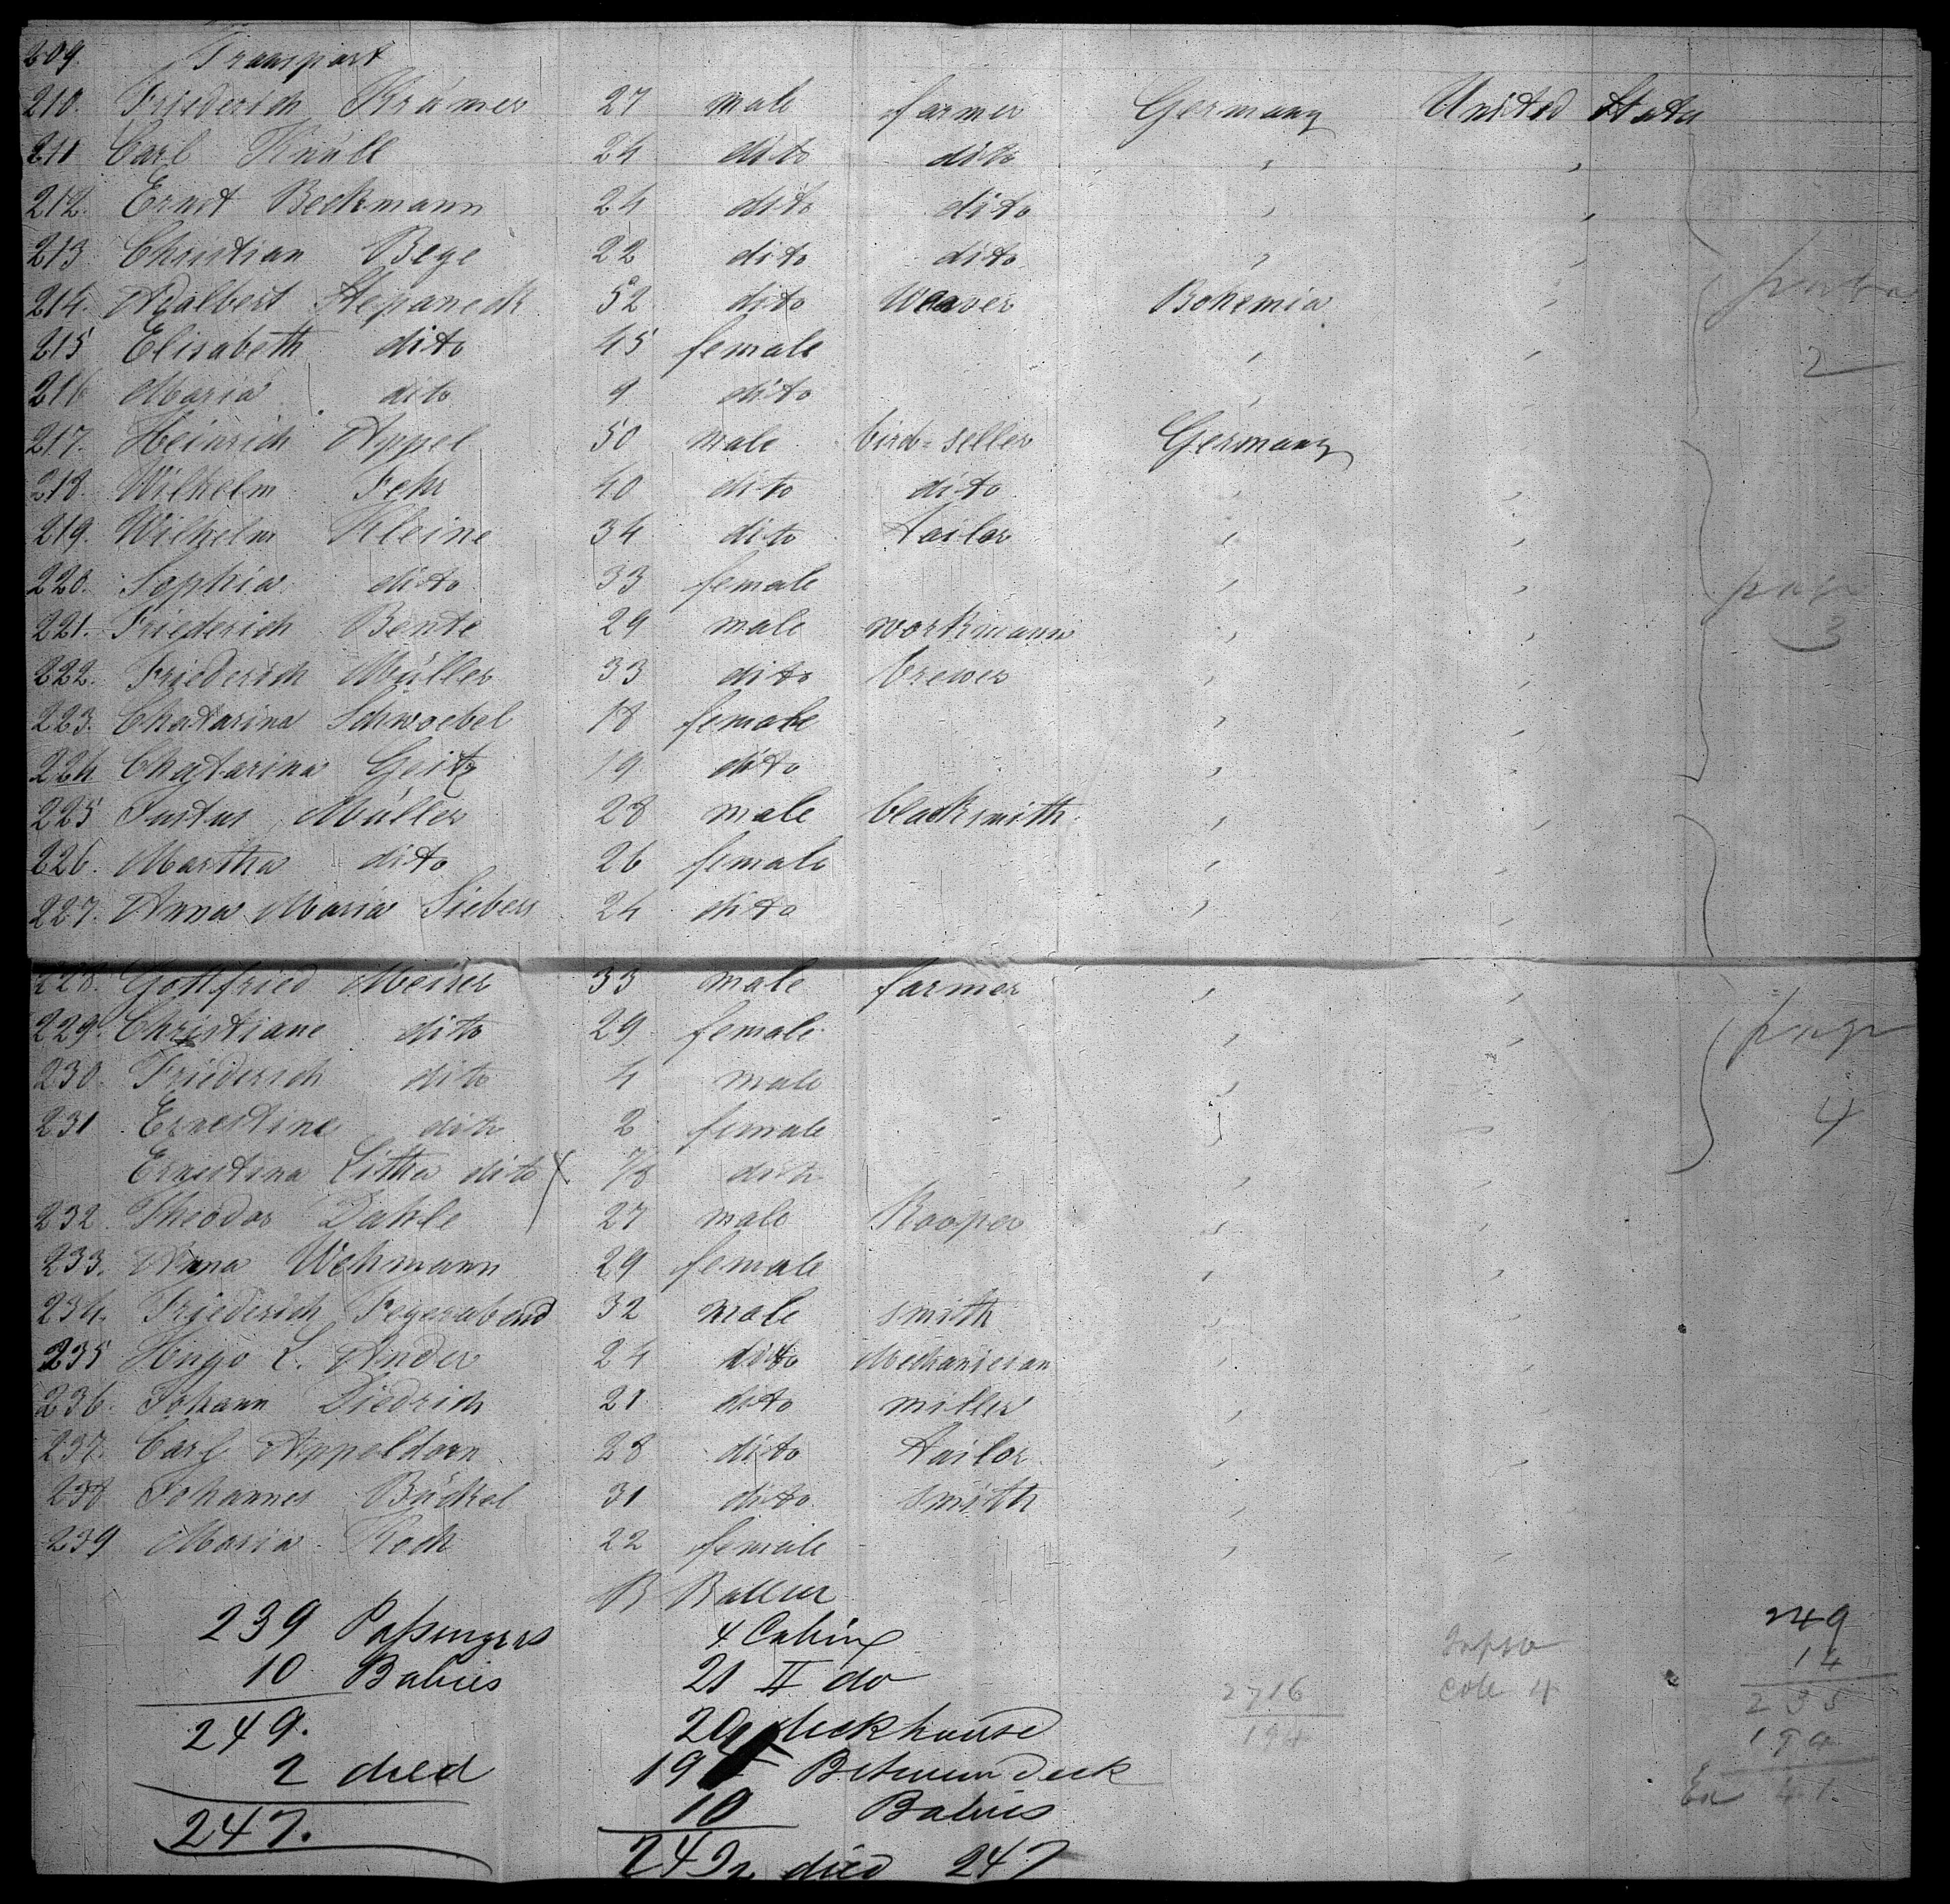 209. Transport
210. Friederich Krämer 27 male farmer Germany United States
211 Carl Knüll 24 dito dito " "
212. Ernst Beckmann 24 dito dito " "
213 Christian Bege 22 dito dito " "
214. Adalbert Stepaneck 52 dito Weaver Bohemia "
215 Elisabeth dito 45 female " "
216 Maria dito 9 dito " "
217. Heinrich Appel 50 male bird=seller Germany
218. Wilhelm Fehr 40 dito dito " "
219. Wilhelm Kleine 34 dito tailor " "
220. Sophia dito 33 female " "
221. Friederich Bente 29 male workmann " "
222. Friederich Müller 33 dito brewer " "
223. Chatarina Schwoebel 18 female " "
224 Chatarina Geitz 19 dito " "
225 Justus Müller 28 male blacksmith " "
226. Martha dito 26 female " "
227. Anna Maria Siebers 24 dito " "
228. Gottfried Meiser 33 male farmer " "
229. Christiane dito 29 female " "
230. Friederich dito 4 male "
231 Ernestine dito 2 female "
Ernestina Litha dito X 7/8 dito " "
232. Theodor Dahle 27 male Kooper " "
233. Anna Wehmann 29 female " "
234. Friederich Feyerabend 32 male smith " "
235 Hugo L. Ander 24 dito Mechanician " "
236. Johann Diedrich 21 dito miller " "
237. Carl Appeldorn 28 dito tailor " "
238 Johannes Bückel 31 dito smith " "
239 Maria Koch 22 female " "
2
page
3
page
4
239 Passengers
10 Babies
249.
2 died
247.
4 Cabin
21 II do
20 deckhouse
19 Between Deck
10 Babies
249 2 died 247
2716
194
249
14
235
194
41.